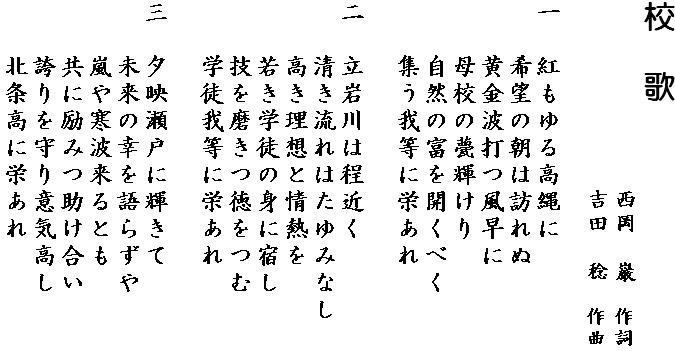 校歌
西岡 巌 作詞
吉田 稔 作曲
一
紅もゆる高縄に
希望の朝は訪れぬ
黄金波打つ風早に
母校の甍輝けり
自然の富を開くべく
集う我等に栄あれ
二
立岩川は程近く
清き流れはたゆみなし
高き理想と情熱を
若き学徒の身に宿し
技を磨きつ徳をつむ
学徒我等に栄あれ
三
夕映瀬戸に輝きて
未来の幸を語らずや
嵐や寒波来るとも
共に励みつ助け合い
誇りを守り意気高し
北条高に栄あれ